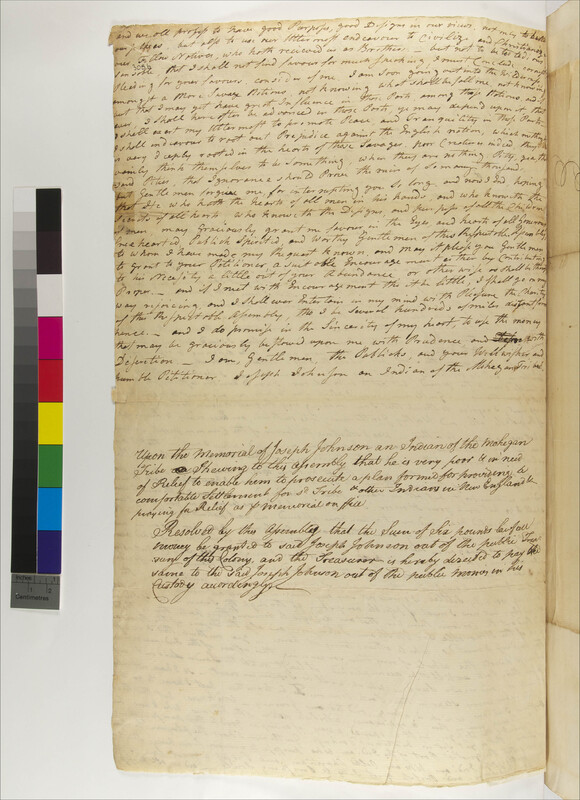 and we all profess to have good Purposes, good Designs in our view, not only to
ourselves, but also to use our uttermost endeavours to Civilize, and Christianize,
our Native, who hath recieved us as Brothers. — but not to be tedious,
sensible that I shall not find favour for much speaking, I must Conclude, in
pleading for your favours. consider of me. I am soon going out into the Wilderness
amongst a More Savage Nations, not knowing what shall befall me, not knowing
but that I may get have great Influence in those Parts among those Nations, and if
ever I shall hereafter be advanced in those Parts, ye may depend upon it that
I shall exert my Uttermost to promote Peace, and Tranquility in those Parts.
I shall endeavour to root out Prejudice against the English nation, which
is very deeply rooted in the hearts of those Savages. Poor Creatures indeed they
vainly think themselves to be something, when they are nothing. Pity, yea
and Pities, that Ignorance should Prove the ruin of so many thousands
but Gentlemen forgive me, for interrupting you so long, and now I do hoping
that He who hath the hearts of all men in his hands, and who knoweth the
Secrets of all hearts, who knoweth the Designs, and Purposes of all the Children
of men, may Graciously grant me favour in the Eyes, and hearts of all Generous
free hearted, Publick Spirited, and Worthy Gentlemen of this Respectable Assembly
to whom I have made my Request known, and may it please you Gentlemen
to grant to your Petitioner a suitable Encouragement either by Contributing
to his Necessity a little out of your Abundance or otherwise as shall be thought
Proper — and if I meet with Encouragement tho it be little I shall go on my
way rejoicing, and I shall ever Entertain in my mind with Pleasure the
of the this Assembly, tho I be Several hundreds of miles distant from
hence. — and I do promise in the Sincerity of my heart, to use the money
that may be graciously bestowed upon me with Prudence, and with
Discretion — I am, Gentlemen, the Publicks, and your Wellwisher and
humble Petitioner. Joseph Johnson an Indian of the Mohegan Tribe.
Upon the Memorial of Joseph Johnson an Indian of the Mohegan
Tribe Shewing to this Assembly that he is very poor & in need
of Relief to enable him to prosecute a plan formed for providing a
comfortable Settlement for sd Tribe & other Indians in New England &
praying for Relief as pr memorial on file
Resolved by this Assembly that the Sum of Six pounds lawfull
money be granted to said Joseph Johnson out of the public Trea
sury of this Colony, and the Treasurer is hereby directed to pay the
same to the said Joseph Johnson out of the public monies in his
Custody accordingly
Inches
1
2
Centimetres